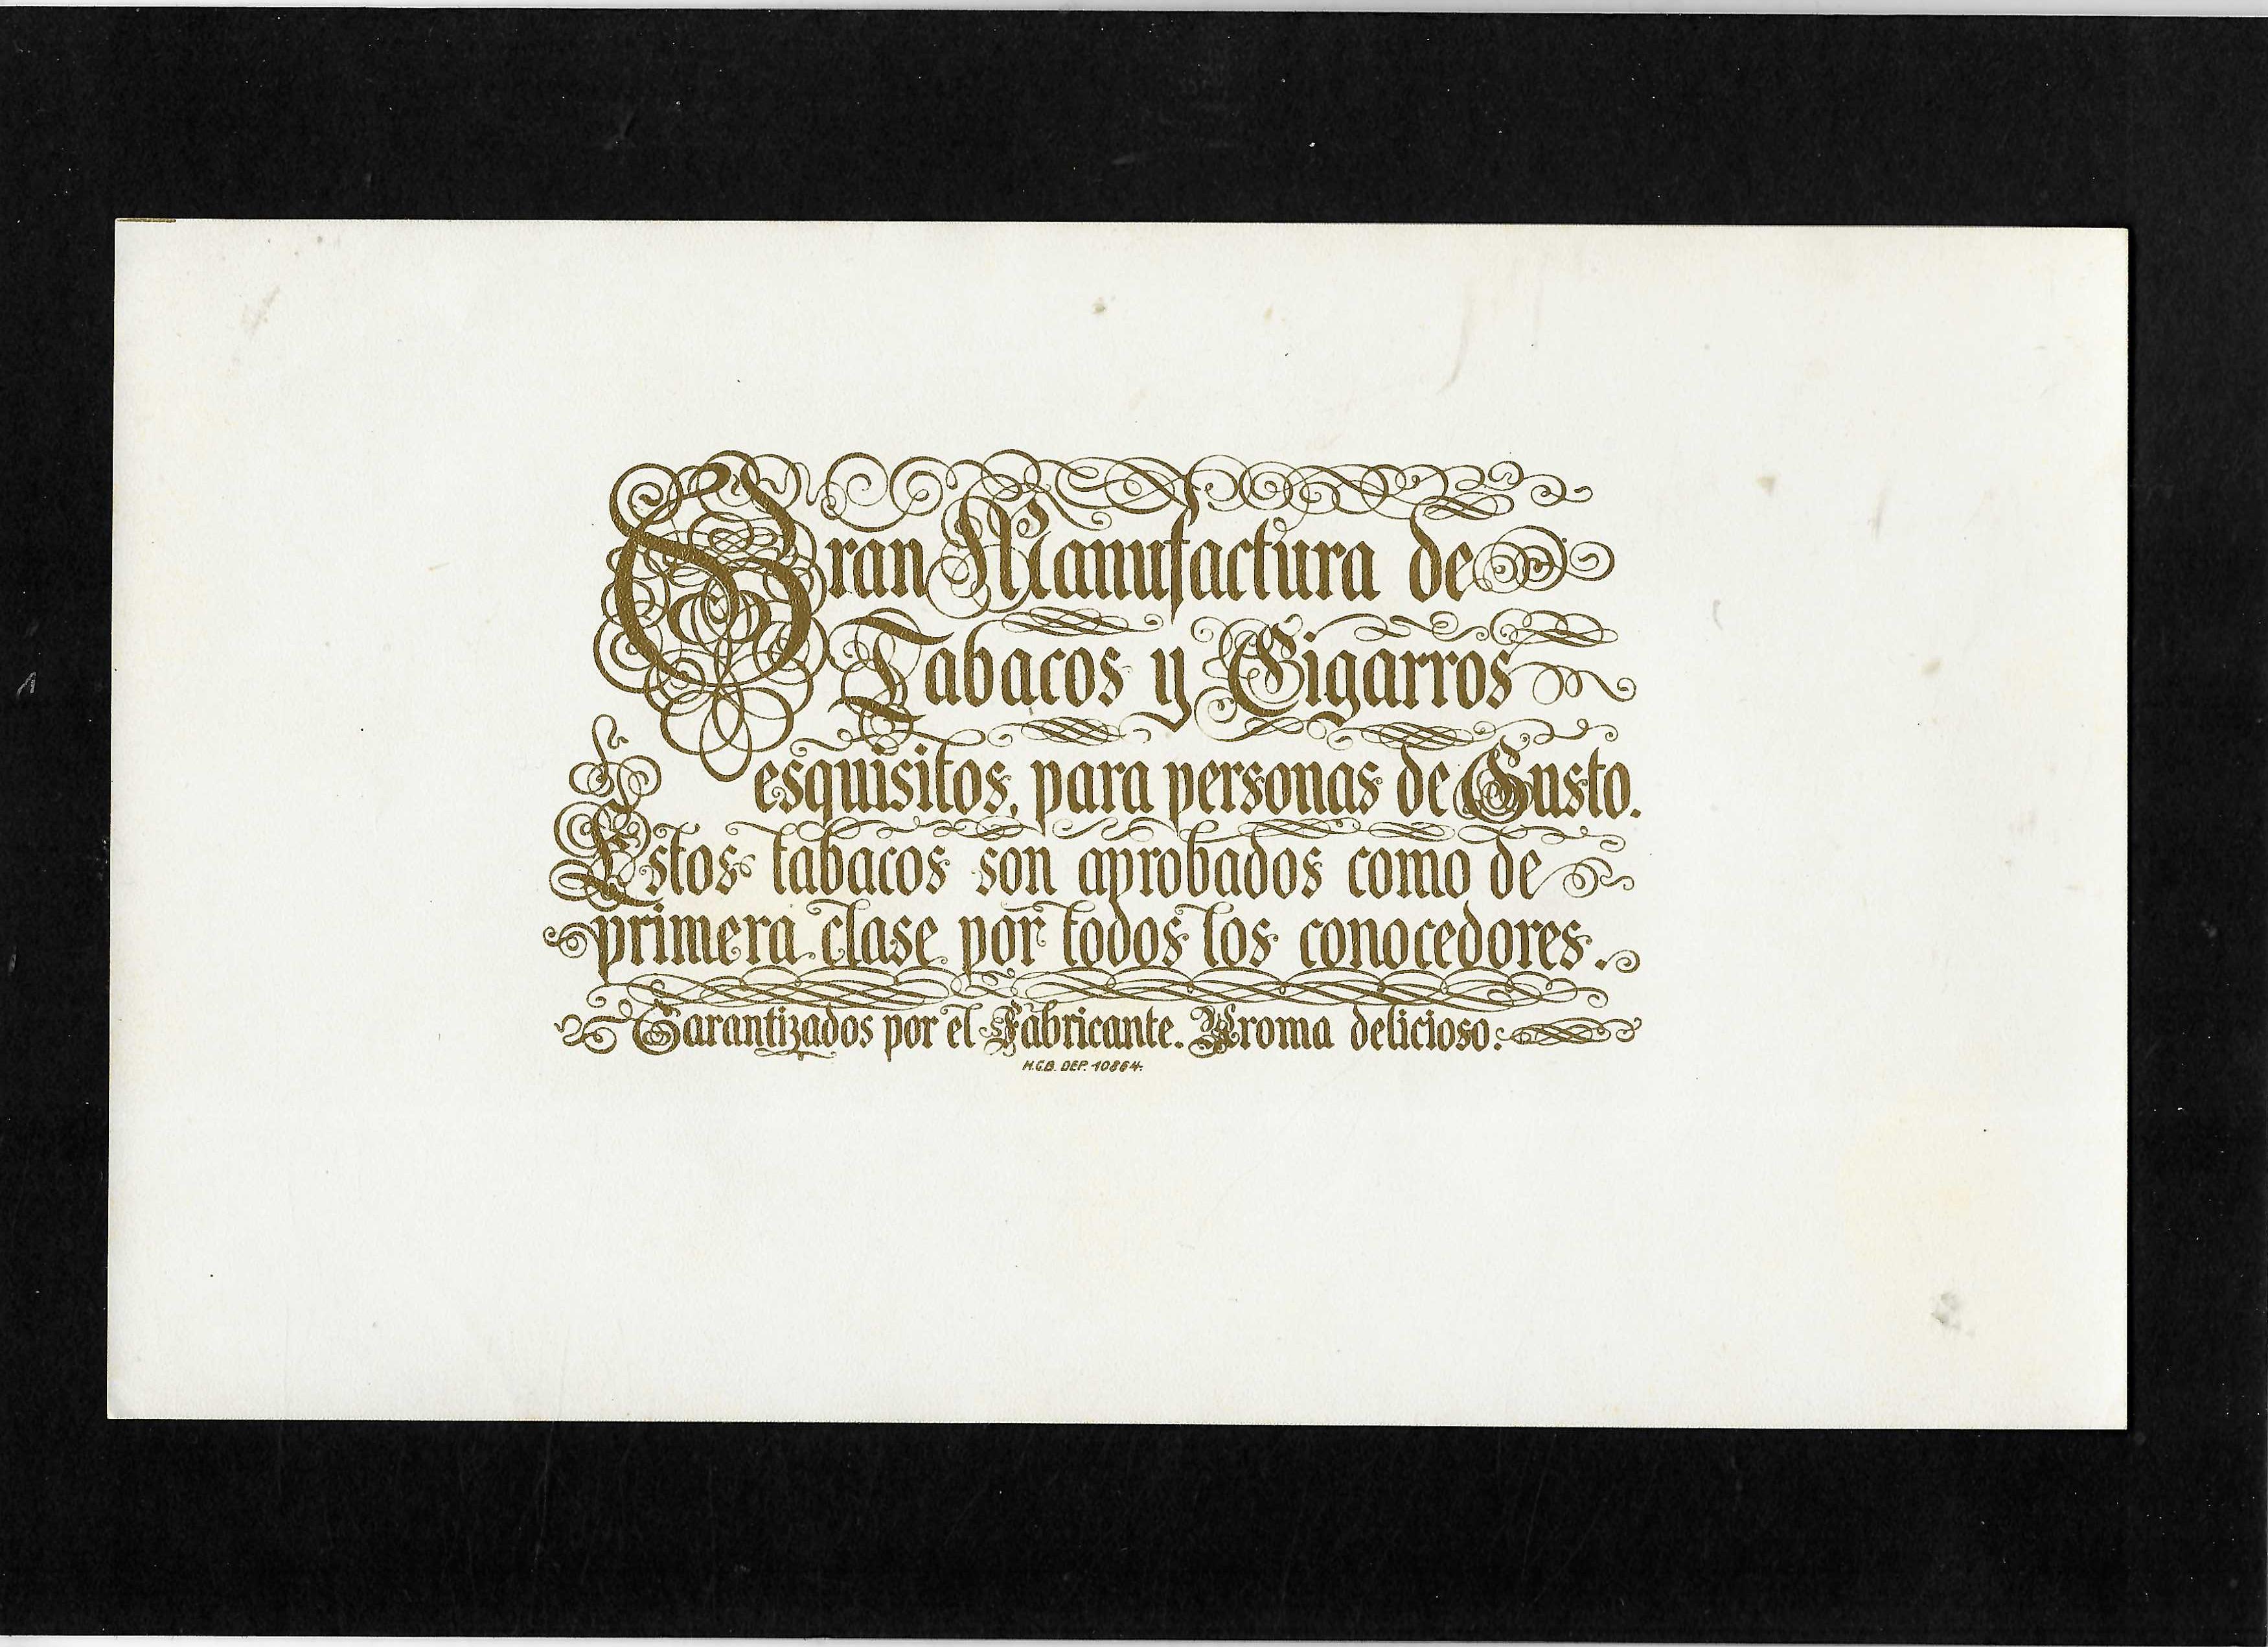 Gran Manufactura de
Tabacos y Cigarros
esquisitos, para personas de Gusto.
Estos tabacos son aprobados como de
primera clase por todos los conocedores.
Garantizados por el Fabricante. Aroma delicioso.
H.C.B. DEP. 10864.